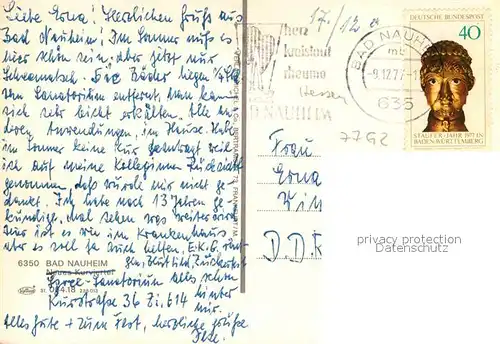 Liebe Erna! Herzlichen Gruß aus
Bad Nauheim! Im Sommer muß es
hier schön sein, aber jetzt nur
Schneematsch. Die Bäder liegen 3/4 Std
vom Sanatorium entfernt, man kann
sich sehr leicht erkälten. Alle
deren Anwendungen, im Hause. Hab
im Sommer keine Kur weil
ich auf meine Kolleginnen Rücksicht
genommen, daß wurde mir nicht ge-
dankt. Ich habe nach 13 Jahren ge-
kündigt, mal sehen was weiter wird
hier ist es wie im Krankenhaus
aber es soll ja auch helfen, E.K.G.
Blutbild, Zuckertest
6350 BAD NAUHEIM
Neues Kurviertel
Sanatorium alles schon
Kurstraße 36 Zi. 614 hinter
mir.
alles Gute + zum Fest, herzliche Grüße
17./12
herz
kreislauf
rheuma
Hessen
BAD NAUHEIM
BAD NAUHEIM
mb
-9.12.77-
635
77G2
DEUTSCHE BUNDESPOST
40
STAUFER-JAHR 1977 IN
BADEN-WÜRTTEMBERG
Frau
Erna
D.D.R
privacy protection
Datenschutz